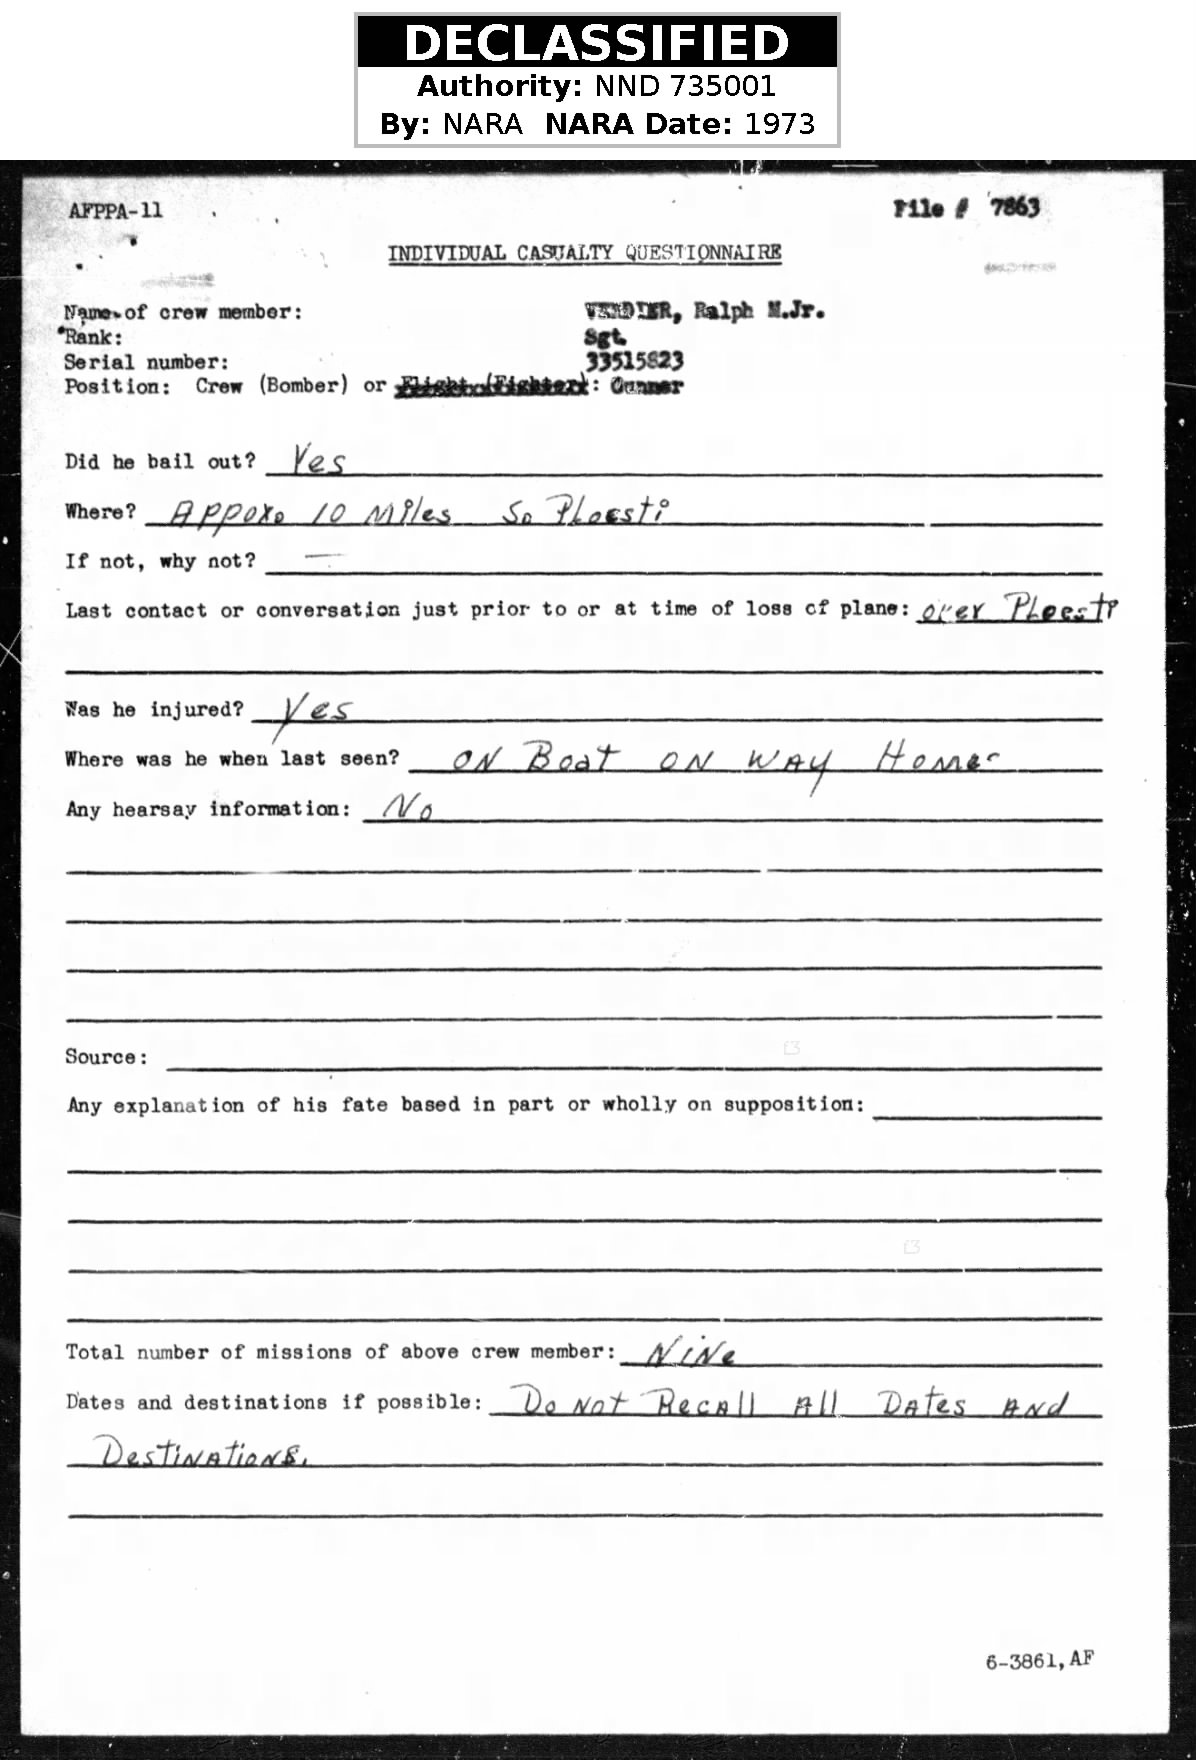 DECLASSIFIED
Authority: NND 735001
By: NARA NARA Date: 1973
AFPPA-11
File # 7863
INDIVIDUAL CASUALTY QUESTIONNAIRE
Name of crew member: VERDIER, Ralph M.Jr.
Rank: Sgt.
Serial number: 33515823
Position: Crew (Bomber) or Flight (Fighter): Gunner
Did he bail out? Yes
Where? Appox. 10 Miles So Ploesti
If not, why not? —
Last contact or conversation just prior to or at time of loss of plane: over Ploesti
Was he injured? Yes
Where was he when last seen? ON Boat ON WAY Home
Any hearsay information: No
Source:
Any explanation of his fate based in part or wholly on supposition:
Total number of missions of above crew member: NiNe
Dates and destinations if possible: Do Not Recall All Dates And
Destinations.
6-3861,AF